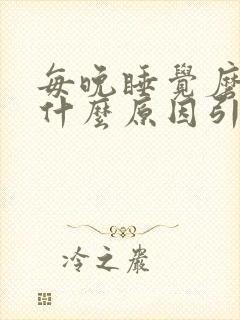 每晚睡覺磨
什麼原因引
冷之嚴